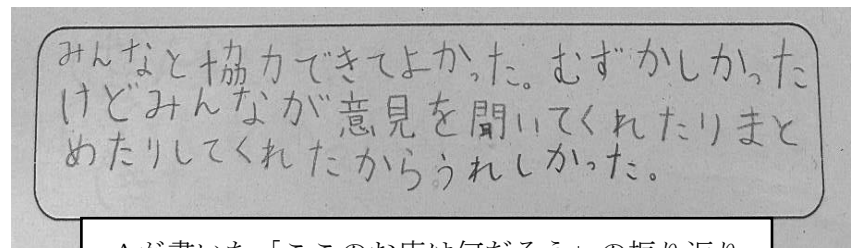 みんなと協力できてよかった。むずかしかった
けどみんなが意見を聞いてくれたりまと
めたりしてくれたからうれしかった。
Aが書いた「ここのお店は何だろう」の振り返り